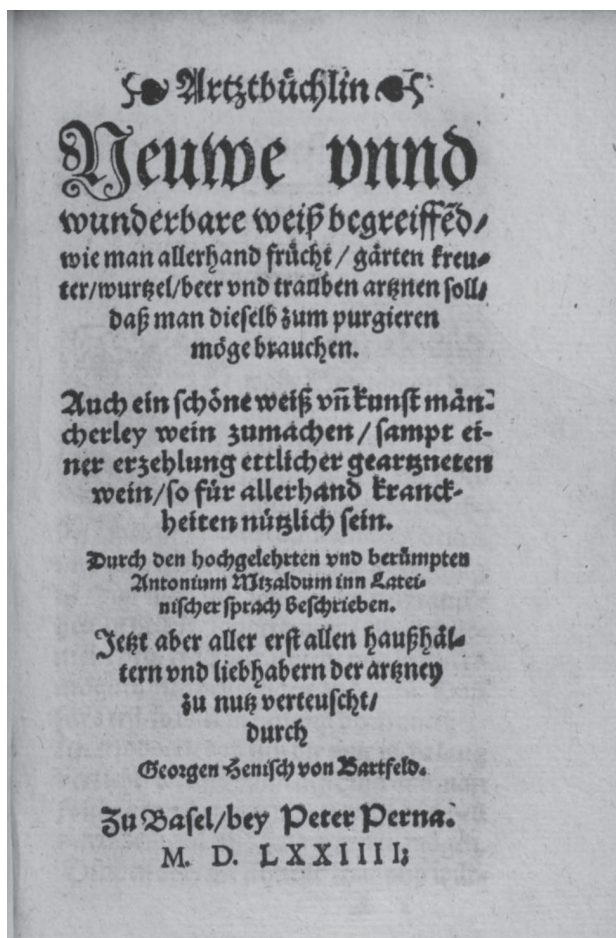 Artztbüchlin
Neuwe vnnd
wunderbare weiß begreiffēd/
wie man allerhand frücht / gärten kreu⸗
ter/wurtzel/beer vnd trauben artznen soll/
daß man dieselb zum purgieren
möge brauchen.
Auch ein schöne weiß vñ kunst män⸗
cherley wein zumachen / sampt ei⸗
ner erzehlung ettlicher geartzneten
wein/so für allerhand kranck⸗
heiten nützlich sein.
Durch den hochgelehrten vnd berümpten
Antonium Mizaldum inn Latei⸗
nischer sprach beschrieben.
Jetzt aber aller erst allen haußhäl⸗
tern vnd liebhabern der artzney
zu nutz verteuscht/
durch
Georgen Henisch von Bartfeld.
Zu Basel/bey Peter Perna.
M. D. LXXIIII;